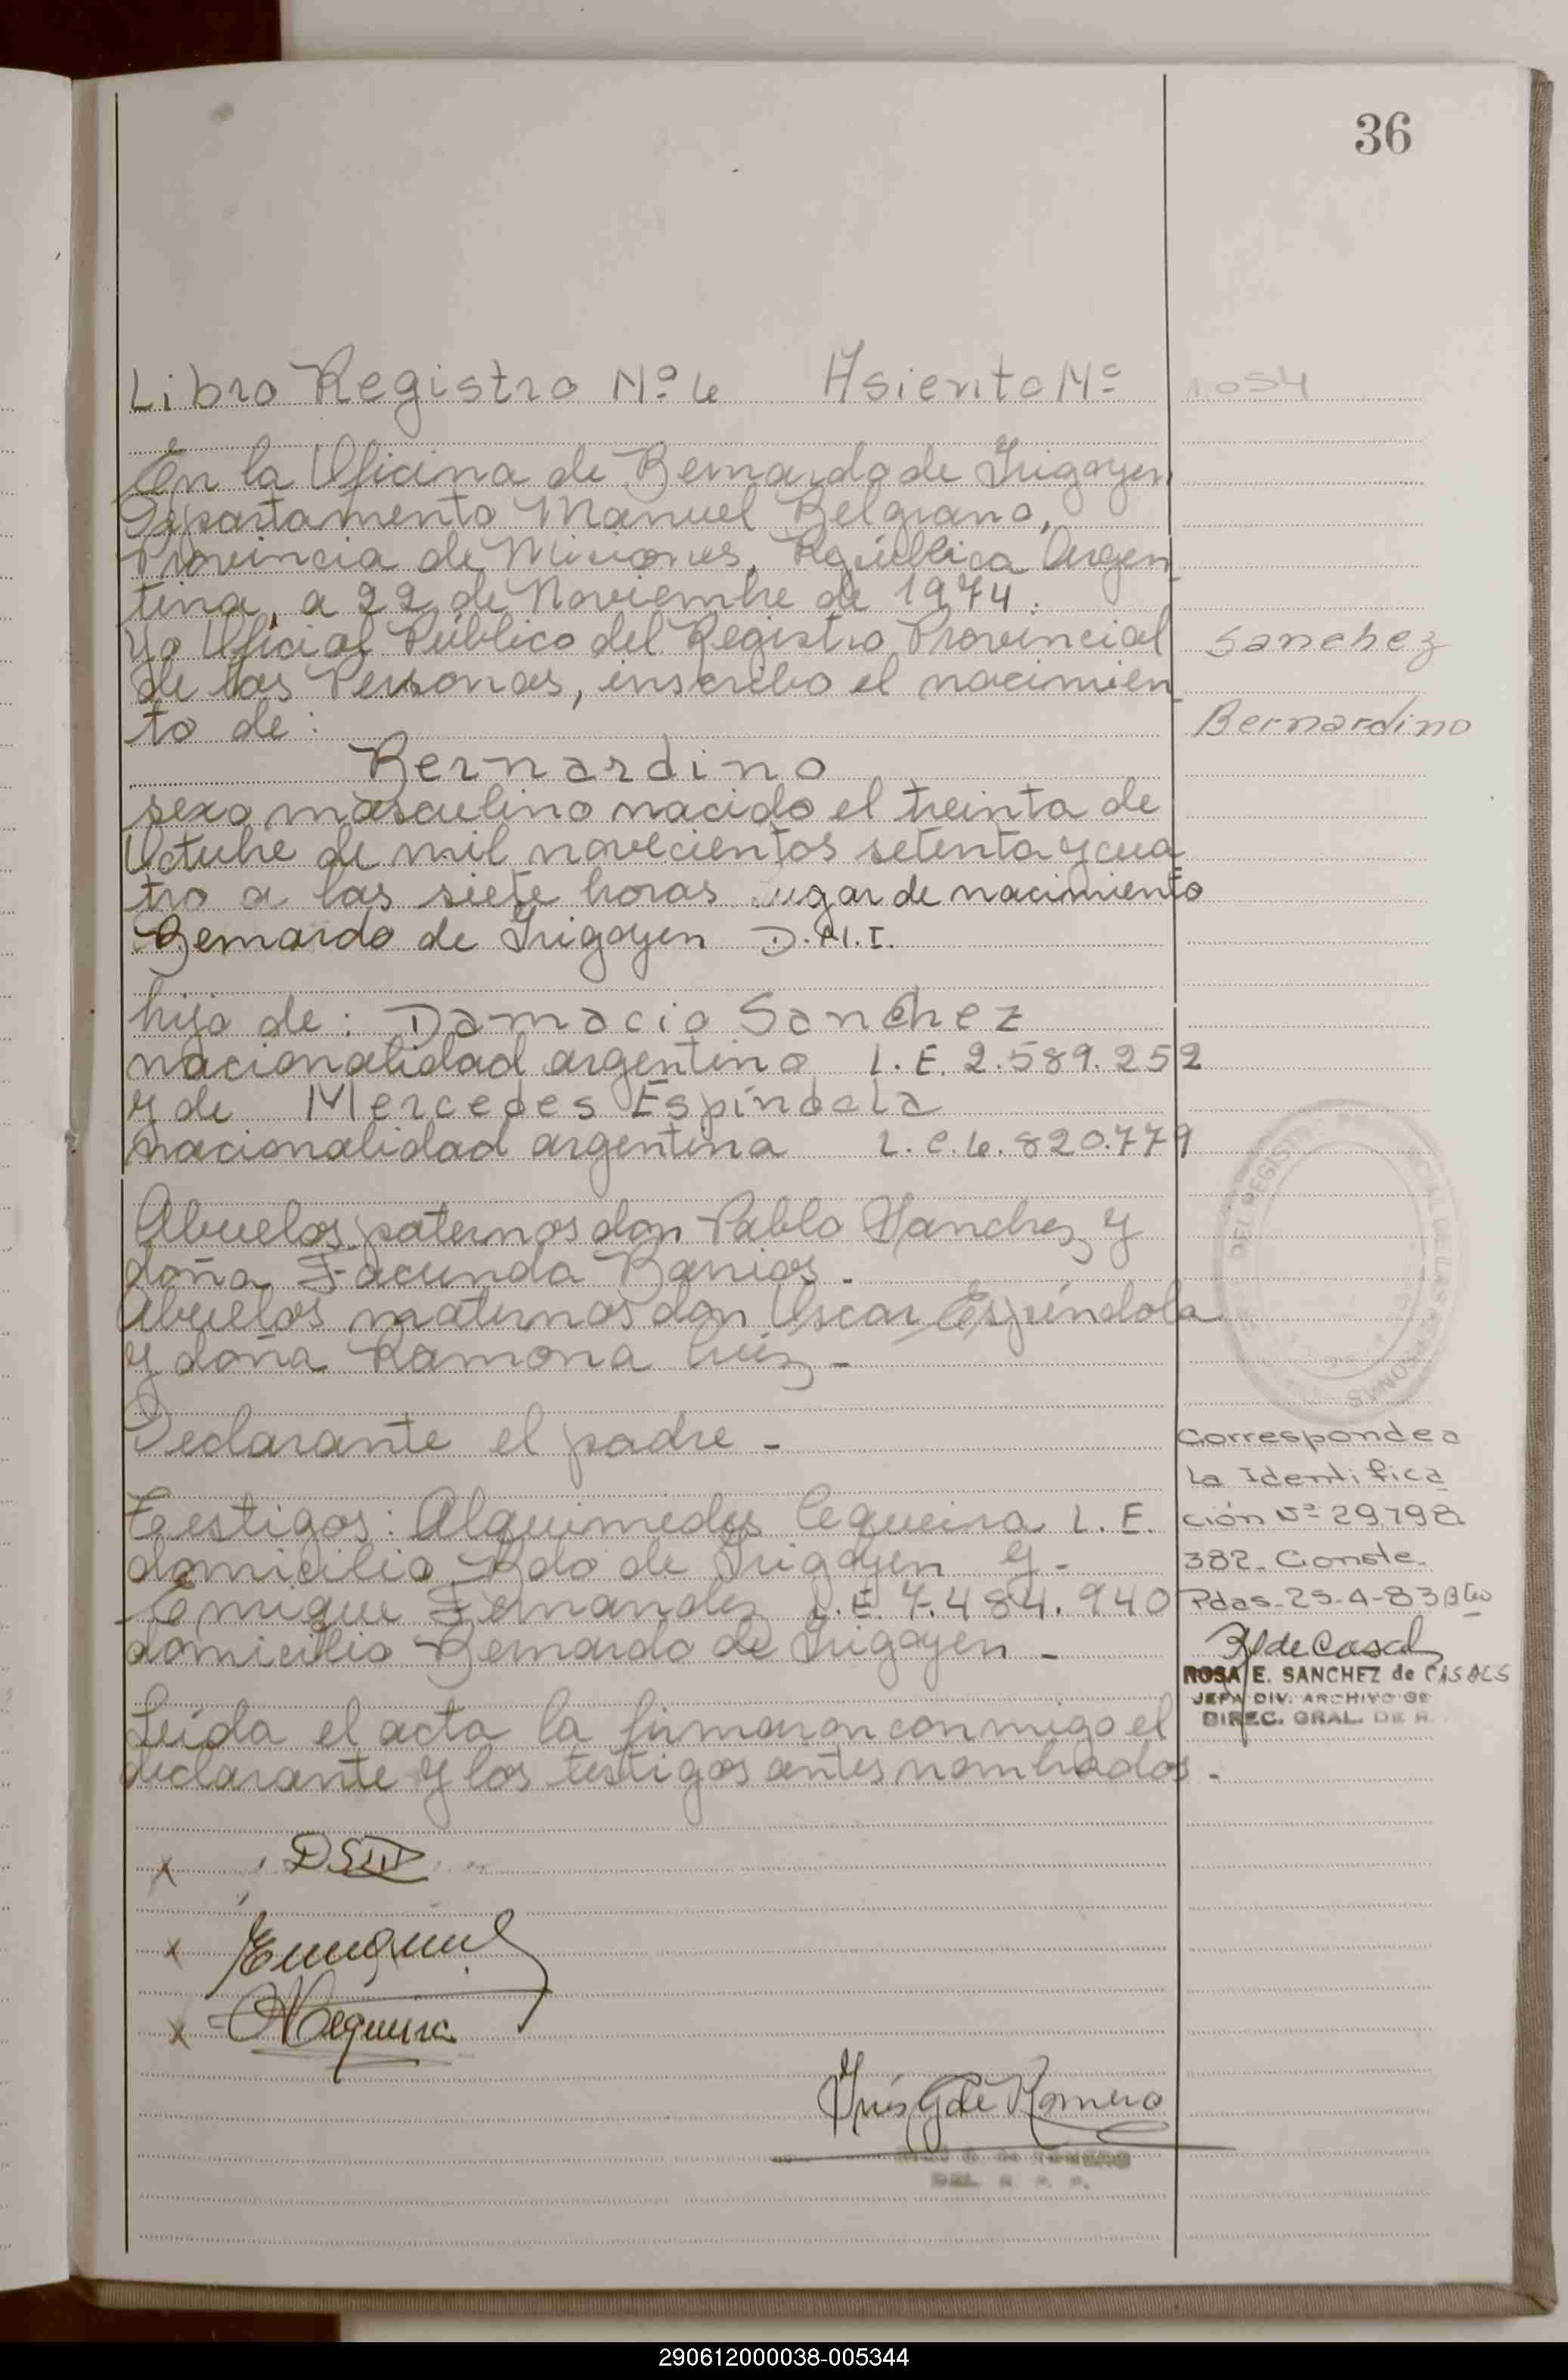 36
Libro Registro Nº 6 Asiento Nº 1.054
En la Oficina de Bernardo de Irigoyen
Departamento Manuel Belgrano,
Provincia de Misiones, República Argen
tina, a 22 de Noviembre de 1974.
Yo Oficial Público del Registro Provincial
de las Personas, inscribo el nacimien
to de:
Sanchez
Bernardino
Bernardino
sexo masculino nacido el treinta de
Octubre de mil novecientos setenta y cua
tro a las siete horas lugar de nacimiento
Bernardo de Irigoyen D.N.I.
hijo de: Damacio Sanchez
nacionalidad argentino L.E. 2.589.252
y de Mercedes Espíndola
nacionalidad argentina L.C. 6.820.779
Abuelos paternos don Pablo Sanchez y
doña Facunda Barrios.
Abuelos maternos don Oscar Espíndola
y doña Ramona
Declarante el padre -
Testigos: Alquimedes Cequeira L.E.
domicilio Bdo de Irigoyen y -
Enrique Fernandez L.E. 7.484.940
domicilio Bernardo de Irigoyen -
Leída el acta la firmaron conmigo el
declarante y los testigos antes nombrados.
DEL REGIST
CIAL DE LAS PERSONAS
Corresponde a
la Identifica
ción Nº 29.798.
382. Conste.
Pdas. 25-4-83
ROSA E. SANCHEZ de CASALS
JEFA DIV. ARCHIVO GE
DIREC. GRAL. DE R.
x
x
x Cequeira
Inés G de Romero
DEL R. P. P.
290612000038-005344